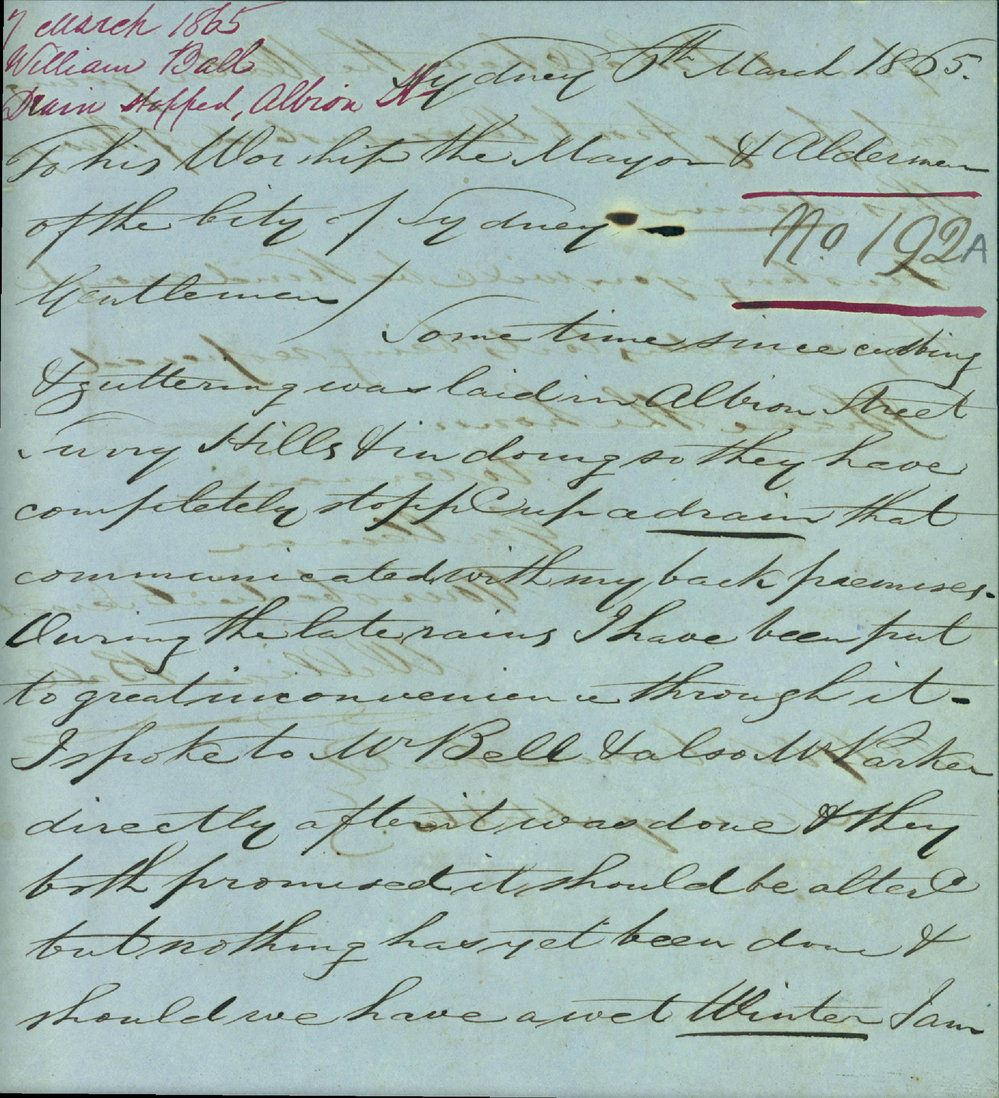 7 March 1865
William Ball
Drain stopped, Albion St
Sydney 6th March 1865.
To his Worship the Mayor & Aldermen
of the City of Sydney
No 192A
Gentlemen /
Some time since cubbing
& guttering was laid in Albion Street
Surry Hills & in doing so they have
completely stopp'd up a drain that
communicated with my back premises.
During the late rains I have been put
to great inconvenience through it -
I spoke to Mr Bell & also Mr Parker
directly after it was done & they
both promised it should be alter'd
but nothing has yet been done &
should we have a wet Winter I am